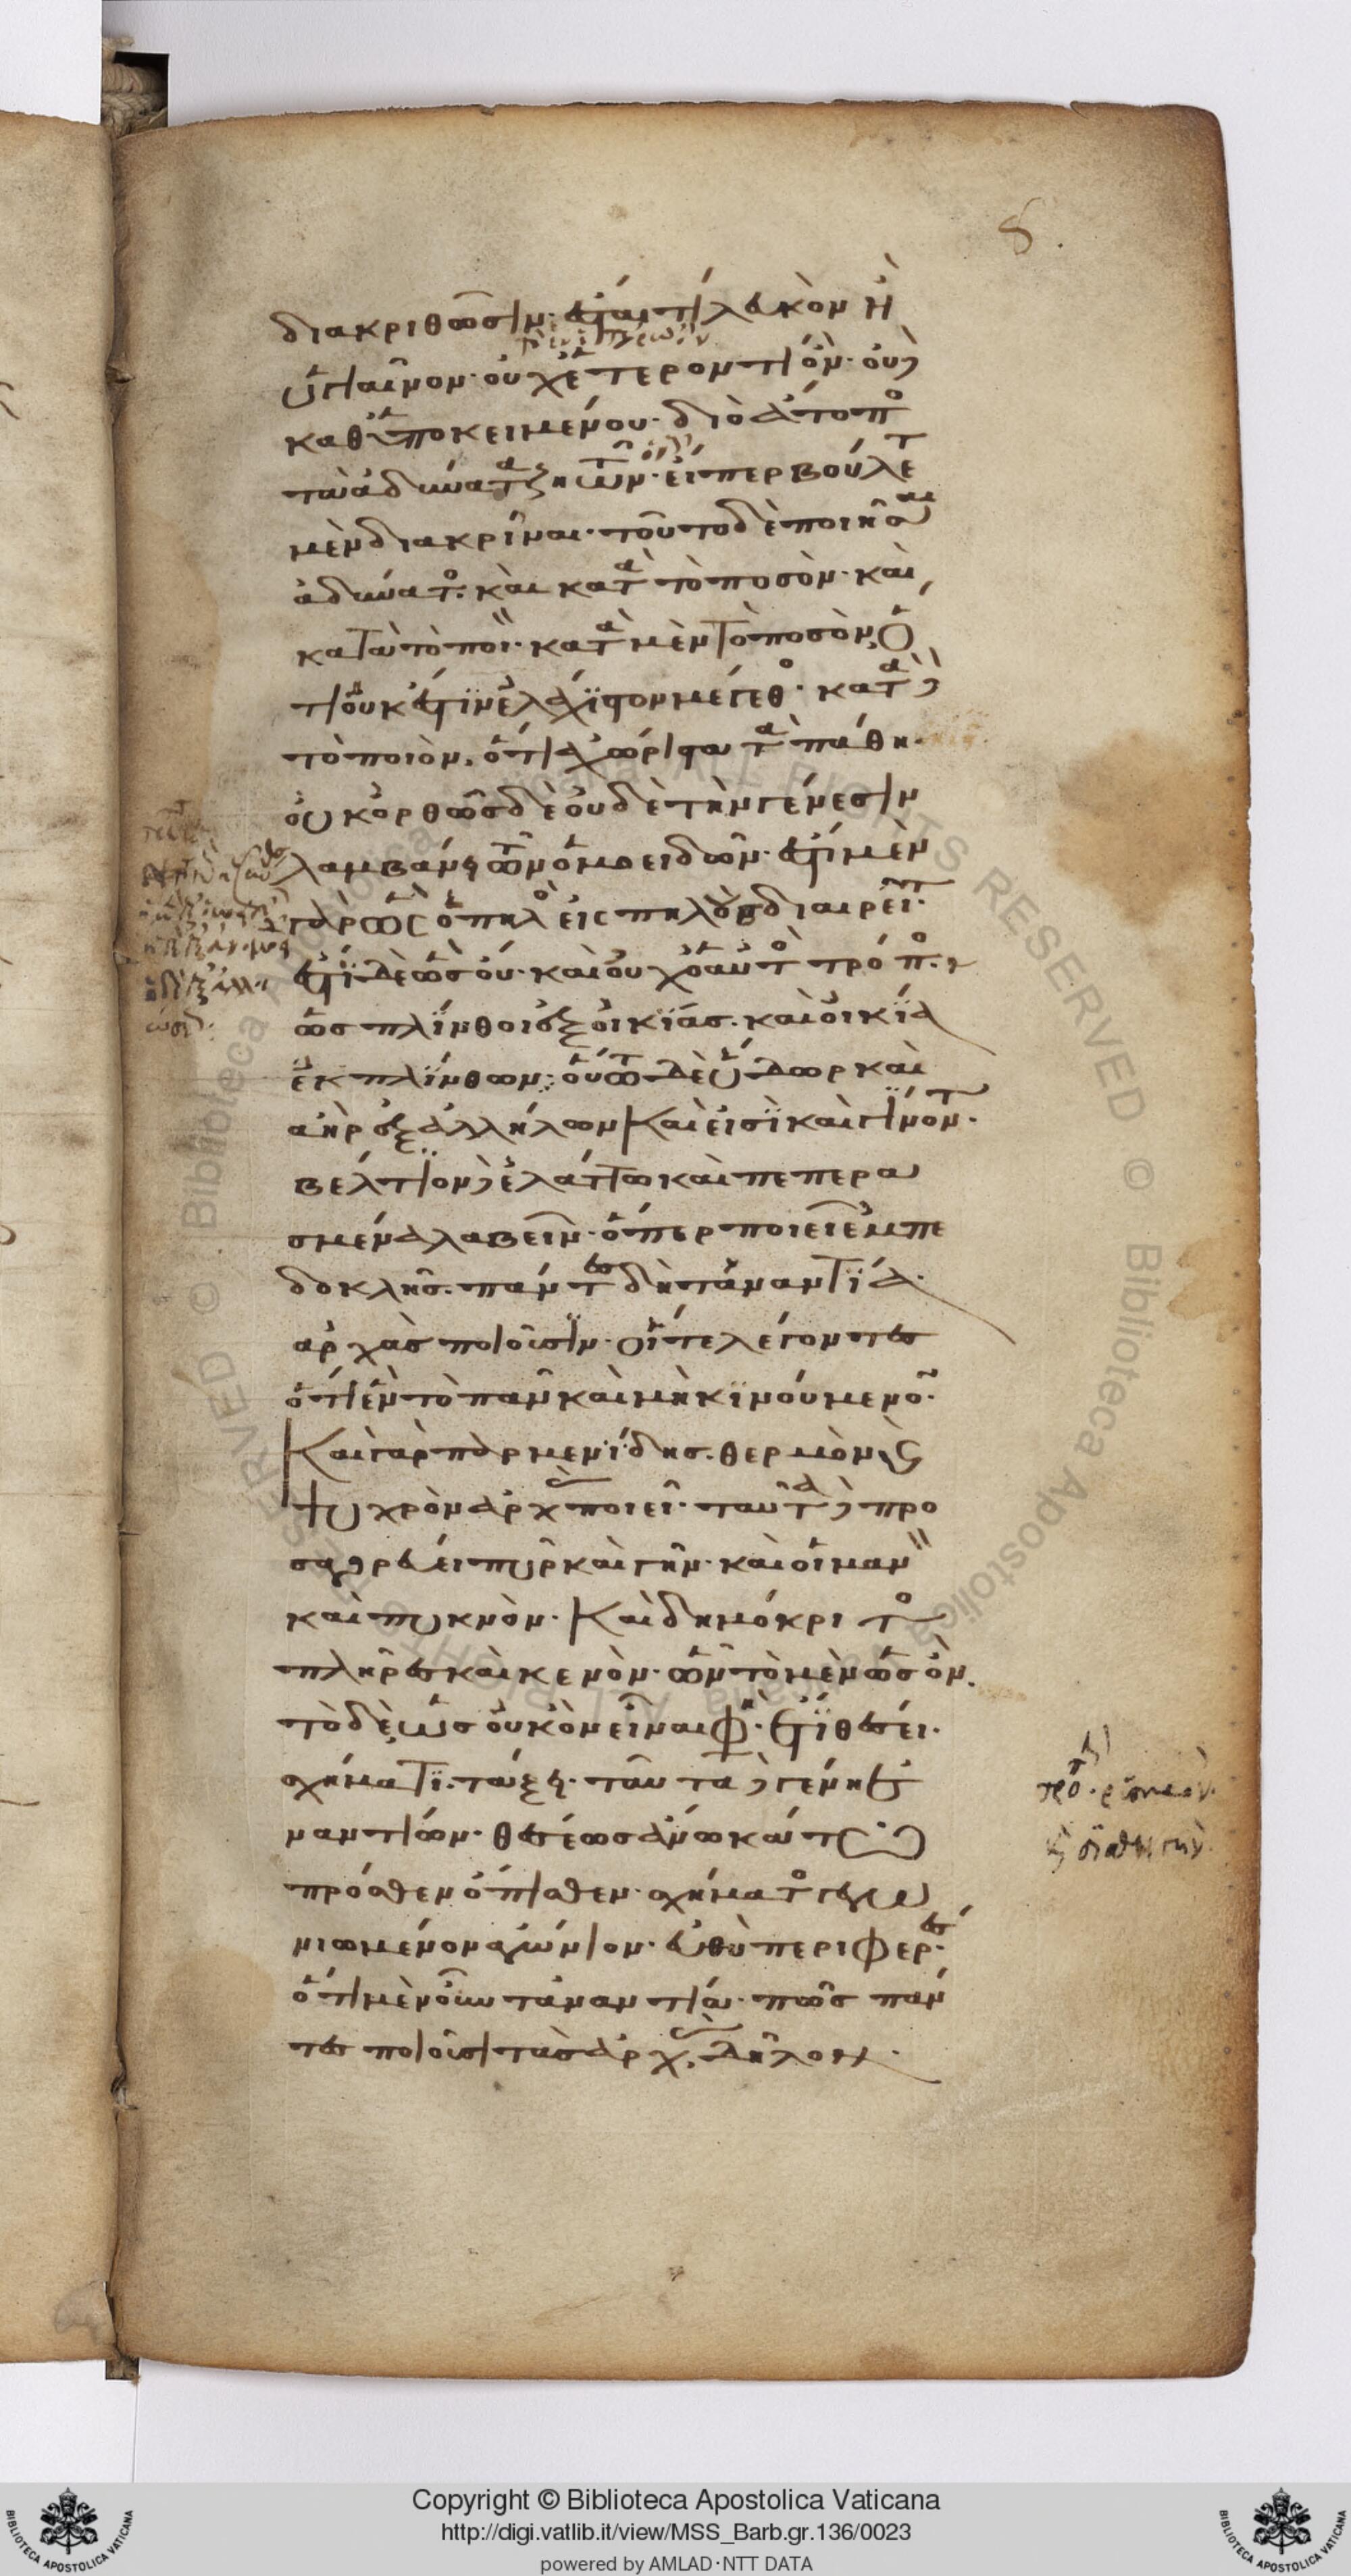 δ.
διακριθῶσιν· ἔσται τὶ λευκὸν ἢ
ὑγιεινὸν· οὐχ ἕτερόν τι ὂν· οὐδὲ
καθ' ὑποκειμένου· διὸ ἄτοπος
τὰ ἀδύνατα ζητῶν· εἴπερ βούλεται
μὲν διακρῖναι· τοῦτο δὲ ποιῆσαι
ἀδύνατον· καὶ κατὰ τὸ ποσὸν· καὶ
κατὰ τὸ ποιὸν· κατὰ μὲν τὸ ποσὸν, ὅ
τι οὐκ ἔστιν ἐλάχιστον μέγεθος· κατὰ δὲ
τὸ ποιὸν, ὅτι ἀχώριστα τὰ πάθη·
οὐκ ὀρθῶς δὲ οὐδὲ τὴν γένεσιν
λαμβάνει τῶν ὁμοειδῶν· ἔστι μὲν
γὰρ ὡς ὁ πηλὸς εἰς πηλοὺς διαιρεῖται·
ἔστι δὲ ὡς οὔ· καὶ οὐχ ὁ αὐτὸς τρόπος·
ὡς πλίνθοι ἐξ οἰκίας· καὶ οἰκία
ἐκ πλίνθων· οὕτω δὲ ὕδωρ καὶ
ἀὴρ ἐξ ἀλλήλων καὶ εἰσὶ καὶ γίνονται·
βέλτιον δὲ ἐλάττω καὶ πεπερα
σμένα λαβεῖν· ὅπερ ποιεῖ Ἐμπε
δοκλῆς· πάντες δὴ τἀναντία
ἀρχὰς ποιοῦσιν· οἵ τε λέγοντες
ὅτι ἓν τὸ πᾶν καὶ μὴ κινούμενον·
καὶ γὰρ Παρμενίδης· θερμὸν καὶ
ψυχρὸν ἀρχὰς ποιεῖ· ταῦτα δὲ προ
σαγορεύει πῦρ καὶ γῆν· καὶ οἱ μανὸν
καὶ πυκνὸν· καὶ Δημόκριτος
πλῆρες καὶ κενὸν· ὧν τὸ μὲν ὡς ὂν.
τὸ δὲ ὡς οὐκ ὂν εἶναι φησὶν· ἔτι θέσει·
σχήματι· τάξει· ταῦτα δὲ γένη ἐ
ναντίων· θέσεως ἄνω κάτω
πρόσθεν ὄπισθεν· σχήματος γεγω
νιωμένον ἀγώνιον· εὐθὺ περιφερές·
ὅτι μὲν οὖν τἀναντία πῶς πάν
τες ποιοῦσι τὰς ἀρχὰς, δῆλον·
Copyright © Biblioteca Apostolica Vaticana
http://digi.vatlib.it/view/MSS_Barb.gr.136/0023
powered by AMLAD·NTT DATA